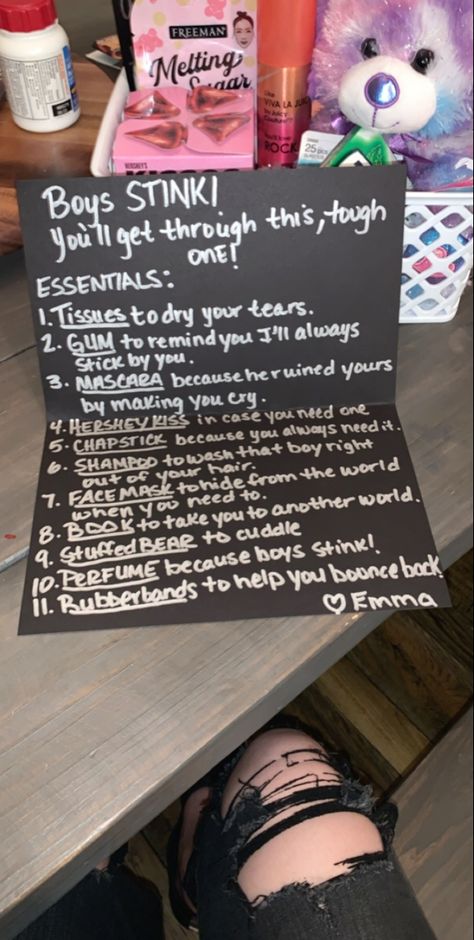 FREEMAN
Melting
Sugar
HERSHEY'S
Like
VIVA LA JUICY
by Juicy
Couture?
You'll love
ROCK
25 pcs
Boys STINK!
You'll get through this, tough
one!
ESSENTIALS:
1. Tissues to dry your tears.
2. GUM to remind you I'll always
stick by you.
3. MASCARA because he ruined yours
by making you cry.
4. HERSHEY KISS in case you need one
5. CHAPSTICK because you always need it.
6. SHAMPOO to wash that boy right
out of your hair.
7. FACE MASK to hide from the world
when you need to.
8. BOOK to take you to another world.
9. Stuffed BEAR to cuddle
10. PERFUME because boys stink!
11. Rubberbands to help you bounce back!
♡ Emma